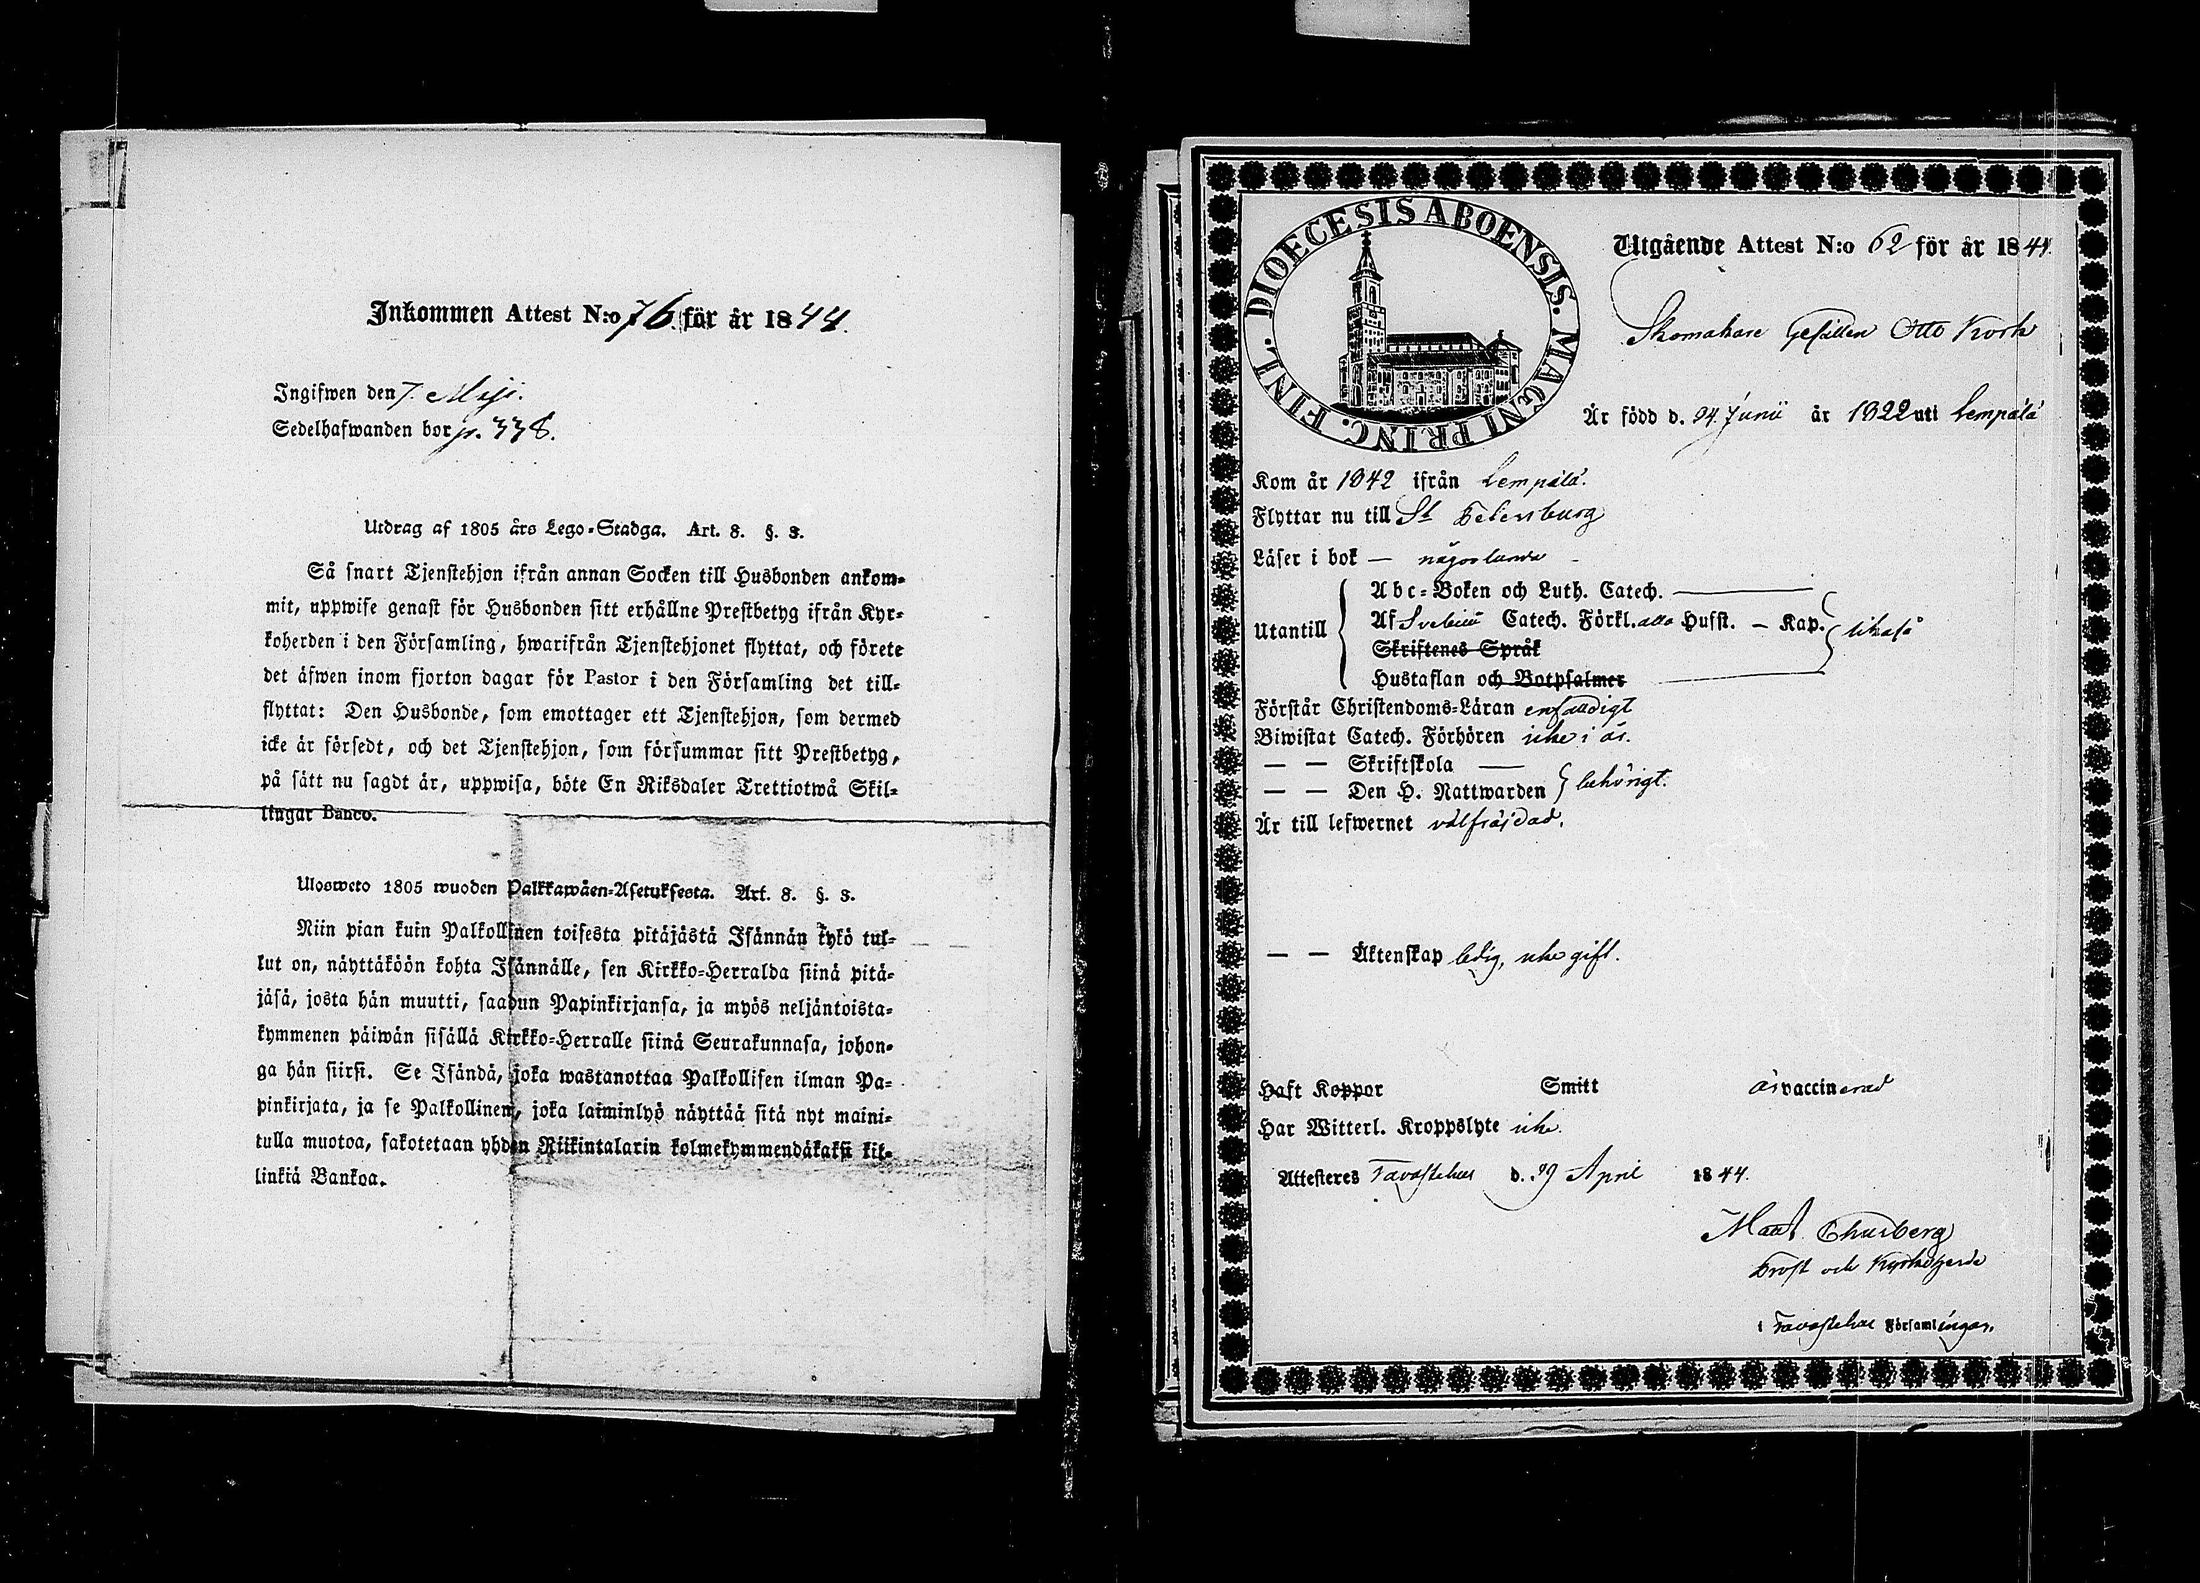 Inkommen Attest N:o 76. för år 1844.
Ingifwen den 7. Maji.
Sedelhafwanden bor p. 338.
Utdrag af 1805 års Lego-Stadga. Art. 8. §. 3.
Så snart Tjenstehjon ifrån annan Socken till Husbonden ankom-
mit, uppwise genast för Husbonden sitt erhållne Prestbetyg ifrån Kyr-
koherden i den Församling, hwarifrån Tjenstehjonet flyttat, och förete
det äfwen inom fjorton dagar för Pastor i den Församling det till-
flyttat: Den Husbonde, som emottager ett Tjenstehjon, som dermed
icke är försedt, och det Tjenstehjon, som försummar sitt Prestbetyg,
på sätt nu sagdt är, uppwisa, böte En Riksdaler Trettiotwå Skil-
lingar Banco.
Ulosweto 1805 wuoden Palkkawäen-Asetuksesta. Art. 8. §. 3.
Niin pian kuin Palkollinen toisesta pitäjästä Isännän tykö tul-
lut on, näyttäköön kohta Isännälle, sen Kirkko-Herralda siinä pitä-
jäsä, josta hän muutti, saadun Papinkirjansa, ja myös neljäntoista-
kymmenen päiwän sisällä Kirkko-Herralle siinä Seurakunnasa, johon-
ga hän siirsi. Se Isändä, joka wastanottaa Palkollisen ilman Pa-
pinkirjata, ja se Palkollinen, joka laiminlyö näyttää sitä nyt maini-
tulla muotoa, sakotetaan yhden Riikintalarin kolmekymmendäkaksi kil-
linkiä Bankoa.
DIOECESIS ABOENSIS. MAGNI PRINC. FINL.
Utgående Attest N:o 62 för år 1844.
Skomakare Gesällen Otto Kork
Är född d. 24. Junii år 1822 uti Lempälä
Kom år 1842 ifrån Lempälä.
Flyttar nu till St Petersburg
Läser i bok — någorlunda
Abc-Boken och Luth. Catech.
Utantill Af Svebilii Catech. Förkl. alla Hufst. — Kap. likaså
Skriftenes Språk
Hustaflan och Botpsalmer
Förstår Christendoms-Läran enfaldigt
Biwistat Catech. Förhören icke i år.
— — Skriftskola —
— — Den H. Nattwarden behörigt.
Är till lefwernet välfräjdad.
— — Äktenskap ledig, icke gift.
Haft Koppor Smitt är vaccinerad
Har Witterl. Kroppslyte icke.
Attesteres Tavastehus d. 29 April 1844.
Thusberg
Prost och Kyrkoherde
i Tavastehus Församlingar.